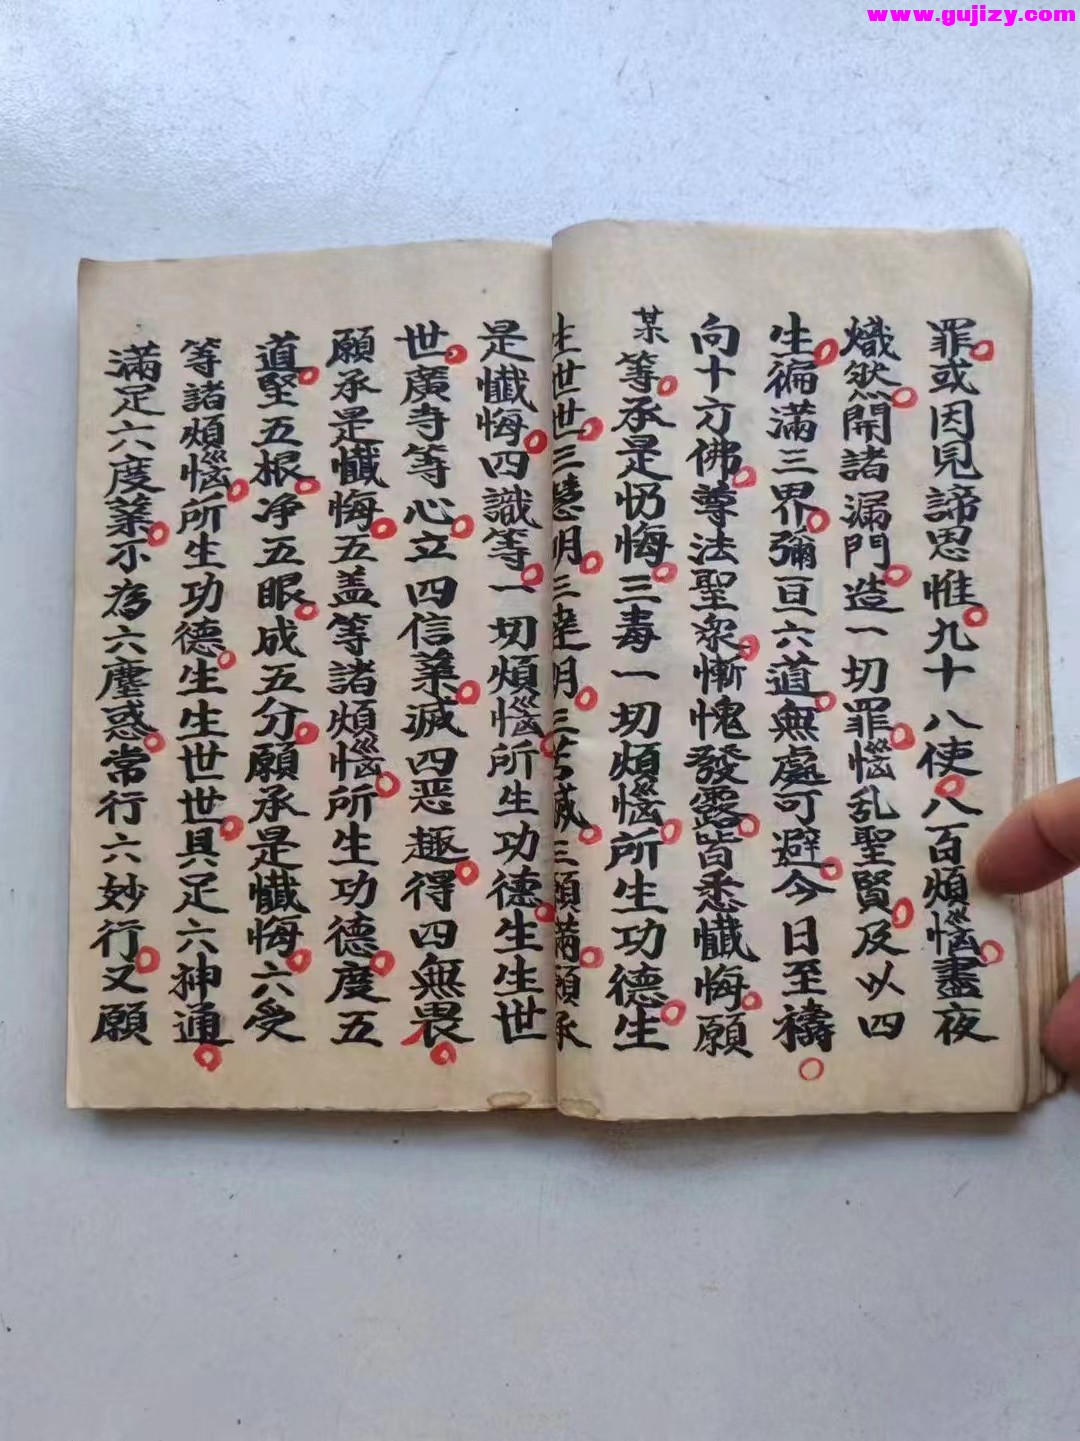 www.gujizy.com
罪或因見諦思惟九十八使八百煩惱盡夜
熾然開諸漏門造一切罪惱乱聖賢及以四
生徧滿三界彌亘六道無處可避今日至禱
向十方佛尊法聖眾慚愧發露皆悉懺悔願
某等承是忉悔三毒一切煩惱所生功德生
生世世三慧明三達明三苦滅三願滿願承
是懺悔四識等一切煩惱所生功德生生世
世廣寺等心立四信業滅四恶趣得四無畏
願承是懺悔五盖等諸煩惱所生功德度五
道堅五根净五眼成五分願承是懺悔六受
等諸煩惱所生功德生生世世具足六神通
滿足六度業不為六塵惑常行六妙行又願